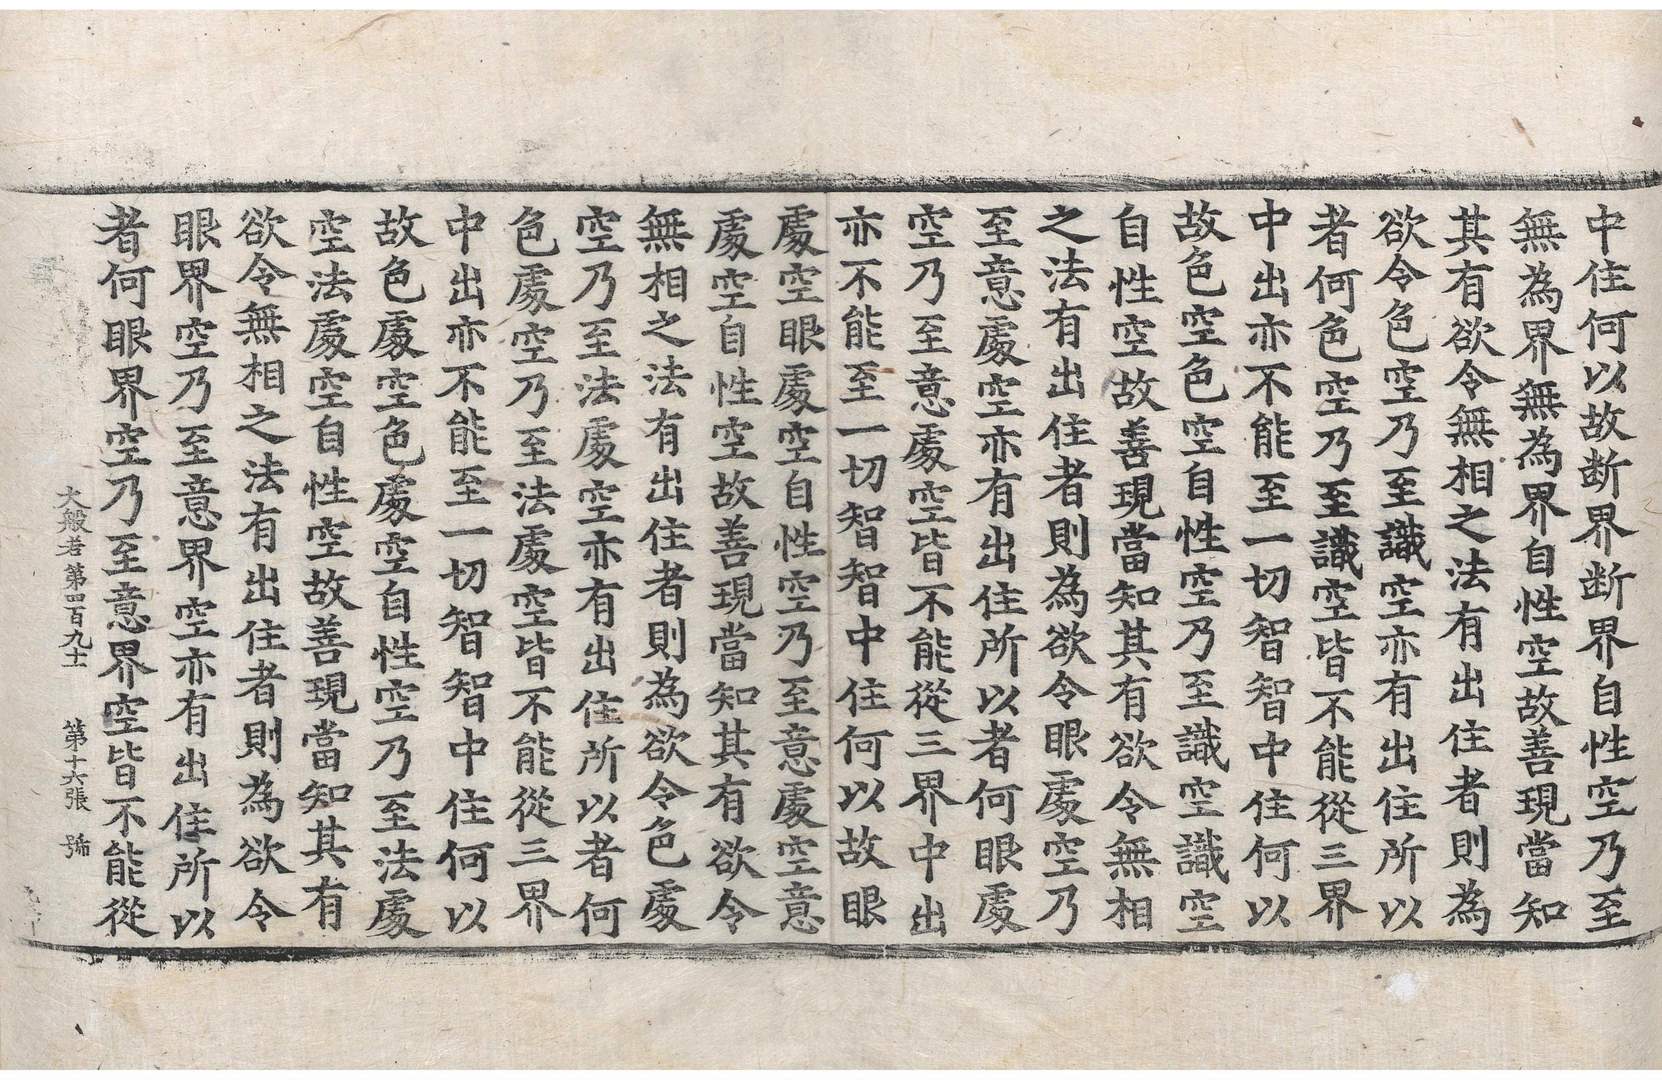 中住何以故断界断界自性空乃至
無為界無為界自性空故善現當知
其有欲令無相之法有出住者則為
欲令色空乃至識空亦有出住所以
者何色空乃至識空皆不能從三界
中出亦不能至一切智智中住何以
故色空色空自性空乃至識空識空
自性空故善現當知其有欲令無相
之法有出住者則為欲令眼處空乃
至意處空亦有出住所以者何眼處
空乃至意處空皆不能從三界中出
亦不能至一切智智中住何以故眼
處空眼處空自性空乃至意處空意
處空自性空故善現當知其有欲令
無相之法有出住者則為欲令色處
空乃至法處空亦有出住所以者何
色處空乃至法處空皆不能從三界
中出亦不能至一切智智中住何以
故色處空色處空自性空乃至法處
空法處空自性空故善現當知其有
欲令無相之法有出住者則為欲令
眼界空乃至意界空亦有出住所以
者何眼界空乃至意界空皆不能從
大般若第四百九十一 第十六張 號